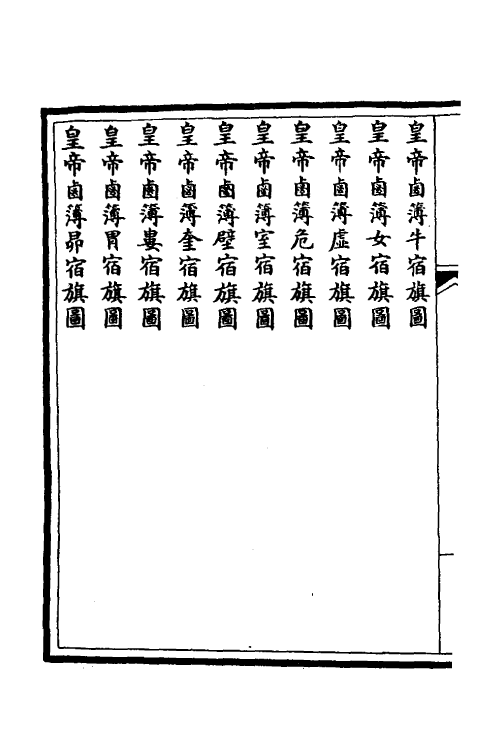 皇帝鹵簿牛宿旗圖
皇帝鹵簿女宿旗圖
皇帝鹵簿虛宿旗圖
皇帝鹵簿危宿旗圖
皇帝鹵簿室宿旗圖
皇帝鹵簿壁宿旗圖
皇帝鹵簿奎宿旗圖
皇帝鹵簿婁宿旗圖
皇帝鹵簿胃宿旗圖
皇帝鹵簿昴宿旗圖